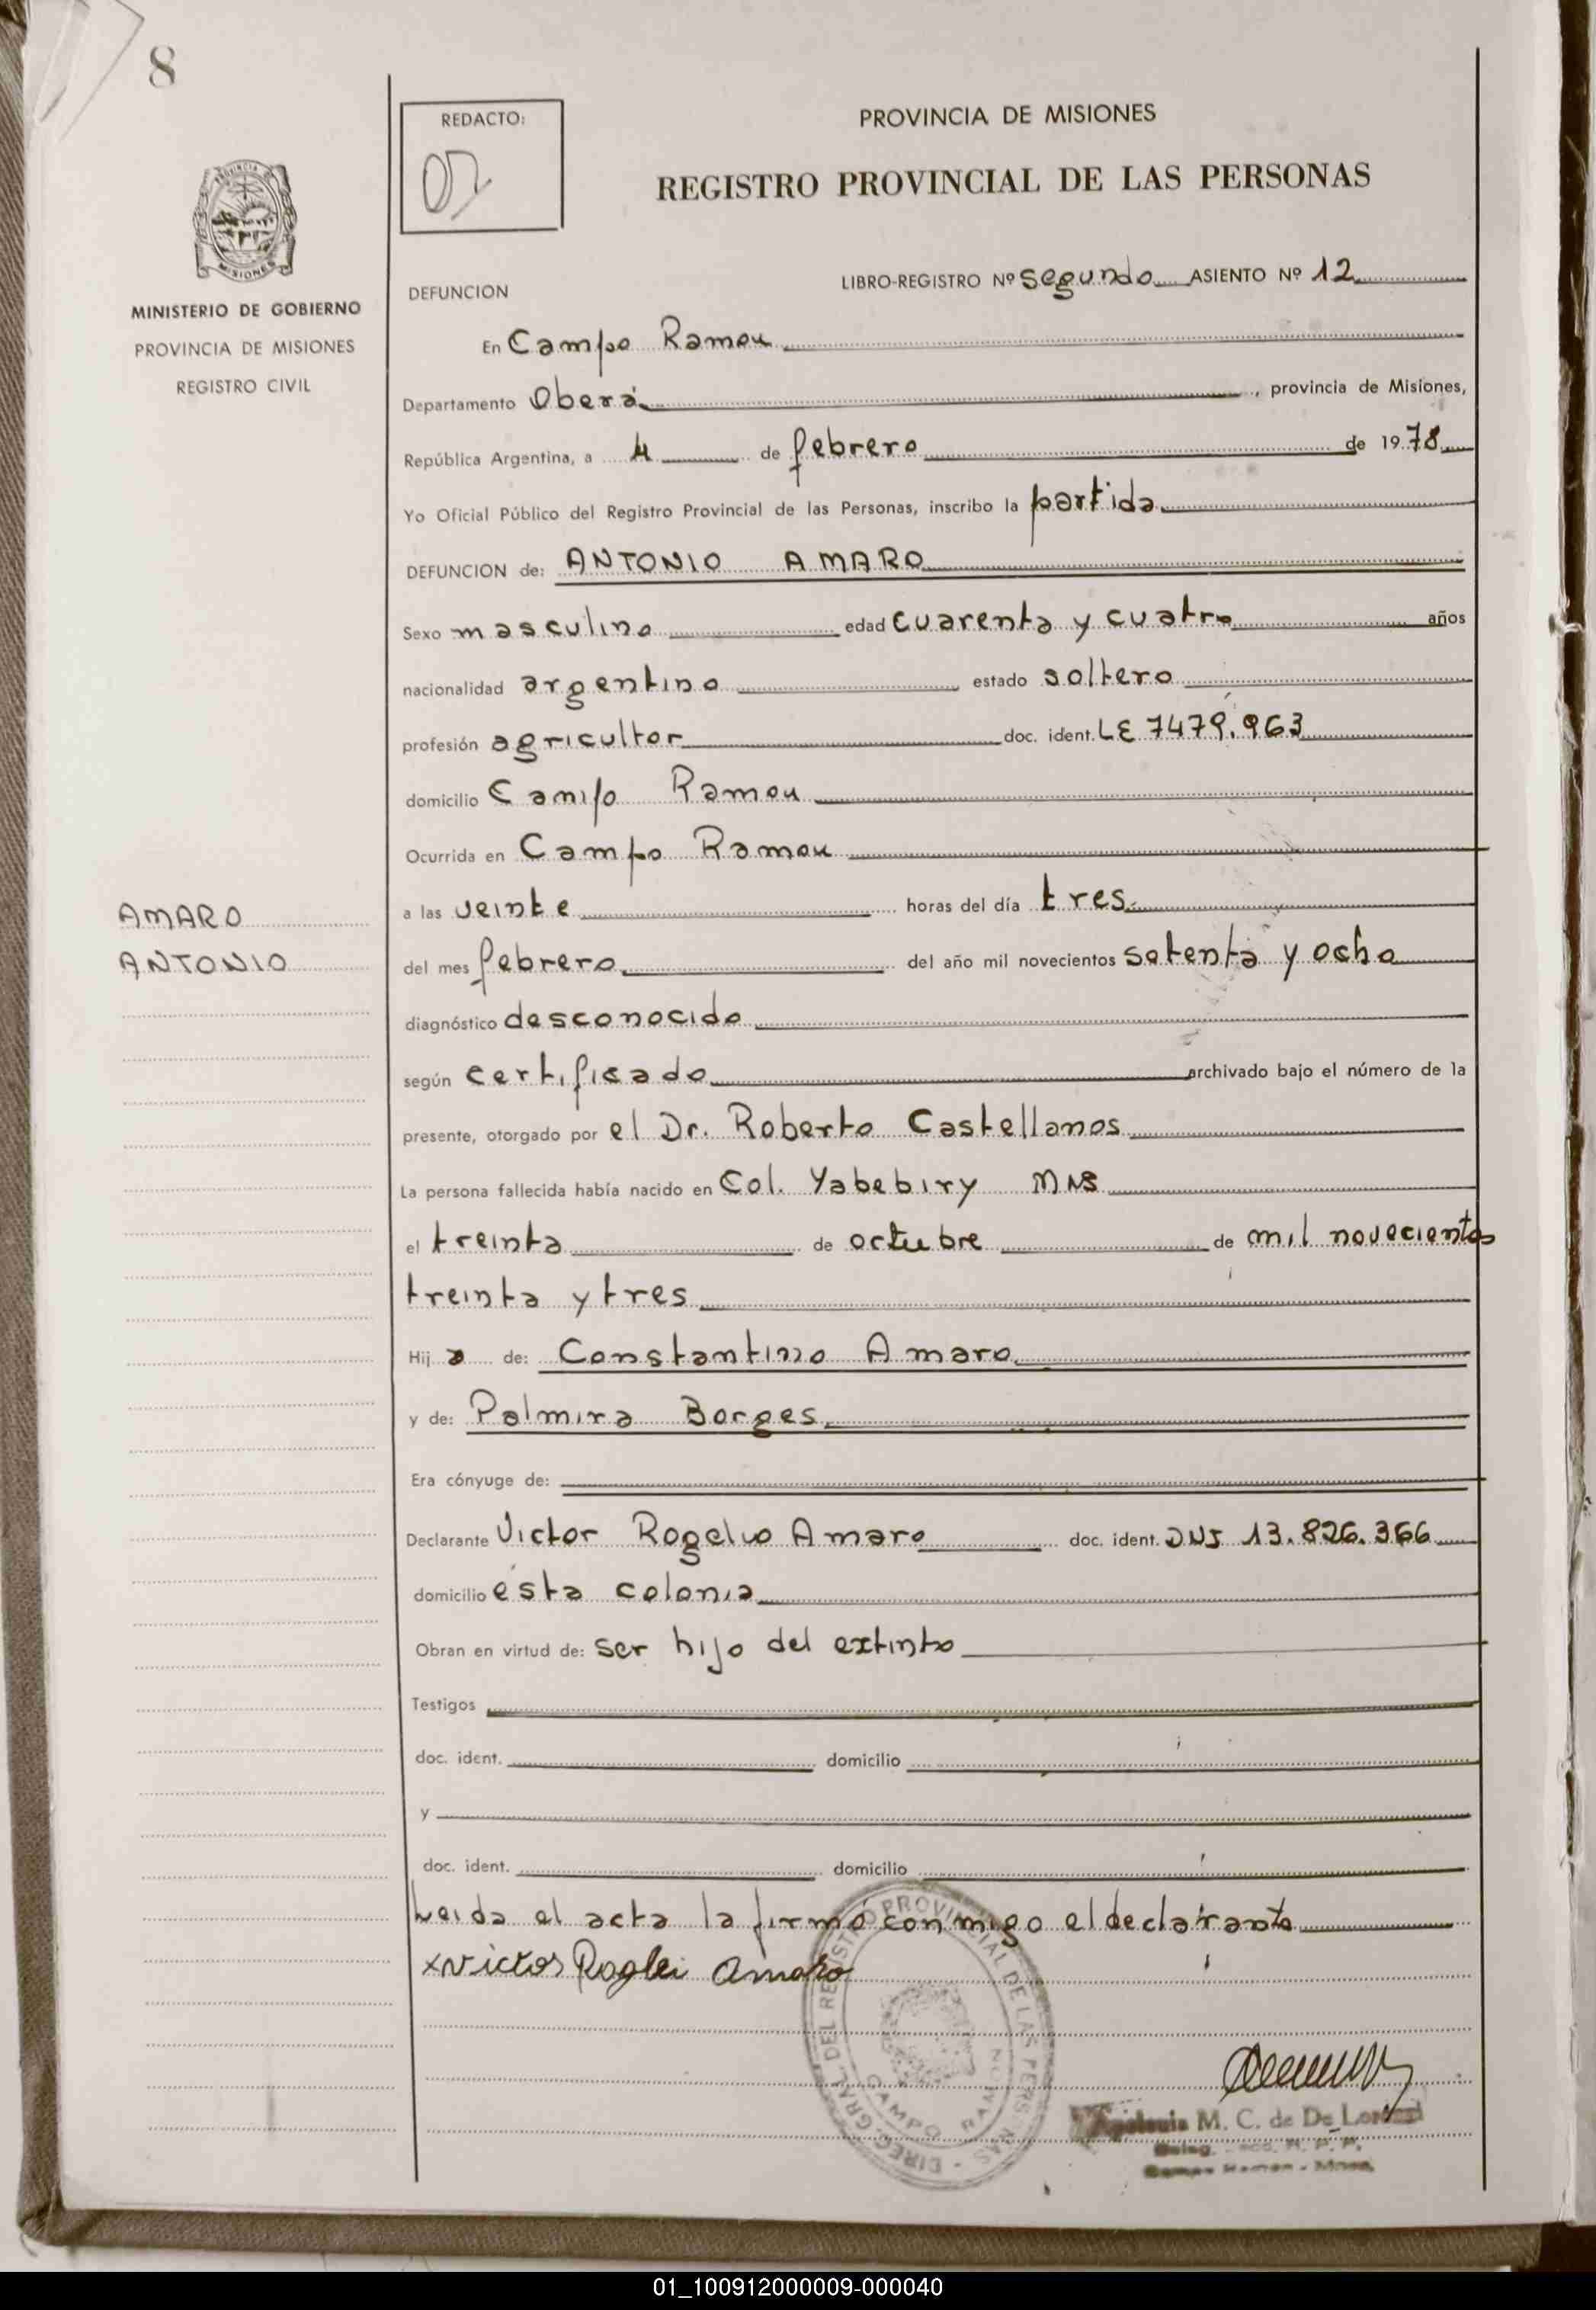 8
REDACTO:
PROVINCIA DE MISIONES
REGISTRO PROVINCIAL DE LAS PERSONAS
MISIONES
MINISTERIO DE GOBIERNO
PROVINCIA DE MISIONES
REGISTRO CIVIL
LIBRO-REGISTRO Nº segundo ASIENTO Nº 12
DEFUNCION
En Campo Ramon
Departamento Oberá, provincia de Misiones,
República Argentina, a 4 de febrero de 1978
Yo Oficial Público del Registro Provincial de las Personas, inscribo la partida
DEFUNCION de: ANTONIO AMARO
Sexo masculino edad cuarenta y cuatro años
nacionalidad argentino estado soltero
profesión agricultor doc. ident. LE 7479.963
domicilio Campo Ramon
Ocurrida en Campo Ramon
AMARO
ANTONIO
a las veinte horas del día tres
del mes febrero del año mil novecientos setenta y ocho
diagnóstico desconocido
según certificado archivado bajo el número de la
presente, otorgado por el Dr. Roberto Castellanos
La persona fallecida había nacido en Col. Yabebiry MNS
el treinta de octubre de mil novecientos
treinta y tres
Hijo de: Constantino Amaro
y de: Palmira Borges
Era cónyuge de:
Declarante Victor Rogelio Amaro doc. ident. DNI 13.826.366
domicilio ésta colonia
Obran en virtud de: ser hijo del extinto
Testigos
doc. ident. domicilio
y
doc. ident. domicilio
Leida el acta la firmó conmigo el declarante
x Victor Roglei Amaro
DIREC. GRAL. DEL REGISTRO PROVINCIAL DE LAS PERSONAS
CAMPO RAMON
M. C. de De
01_100912000009-000040